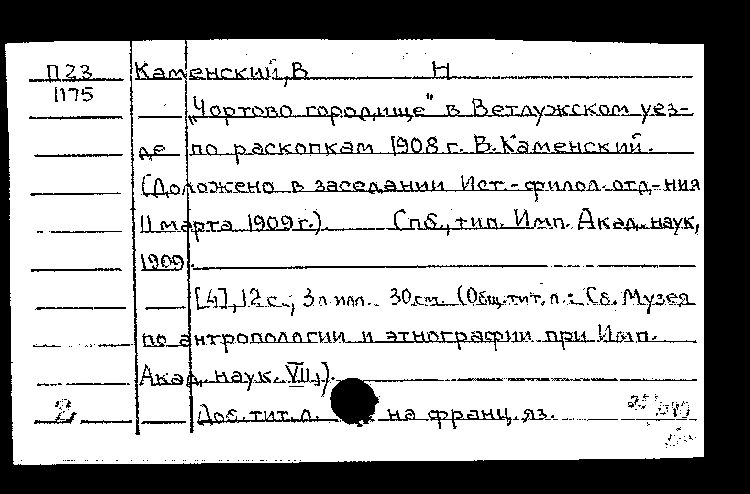 П23 Каменский, В Н
1175
„Чортово городище" в Ветлужском уез-
де по раскопкам 1908 г. В. Каменский.
(Доложено в заседании Ист.-филол. отд-ния
11 марта 1909 г.). Спб., тип. Имп. Акад. наук,
1909.
[4], 12 с., 3 л. илл. 30 см. (Общ. тит. л.: Сб. Музея
по антропологии и этнографии при Имп.
Акад. наук. VII,).
2 Доб. тит. л. на франц. яз.